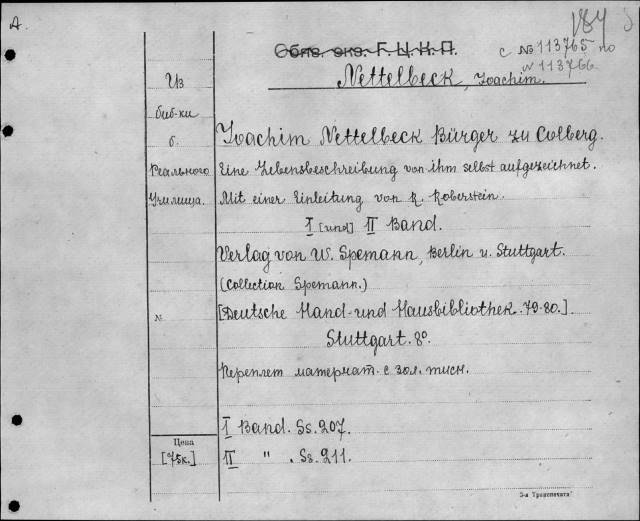 A.
184
Обяз. экз. Г.Ц.К.П.
с № 113765 по
№ 113766
Nettelbeck, Joachim.
Из
биб-ки
б.
Реального
Училища.
Joachim Nettelbeck Bürger zu Colberg.
Eine Lebensbeschreibung von ihm selbst aufgezeichnet.
Mit einer Einleitung von R. Roberstein.
I [und] II Band.
Verlag von W. Spemann, Berlin u. Stuttgart.
(Collection Spemann.)
№
[Deutsche Hand- und Hausbibliothek. 79-80.]
Stuttgart. 8°.
Переплет матерчат. с зол. тисн.
I Band. Ss. 207.
Цена
[75к.]
II " . Ss. 211.
3-я Транспечать"